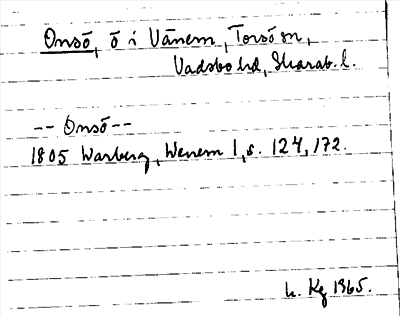 Onsö, ö i Vänern, Torsö sn,
Vadsbo hd, Skarab. l.
-- Onsö --
1805 Warberg, Wenern 1, s. 124, 172.
L. Kg 1965.